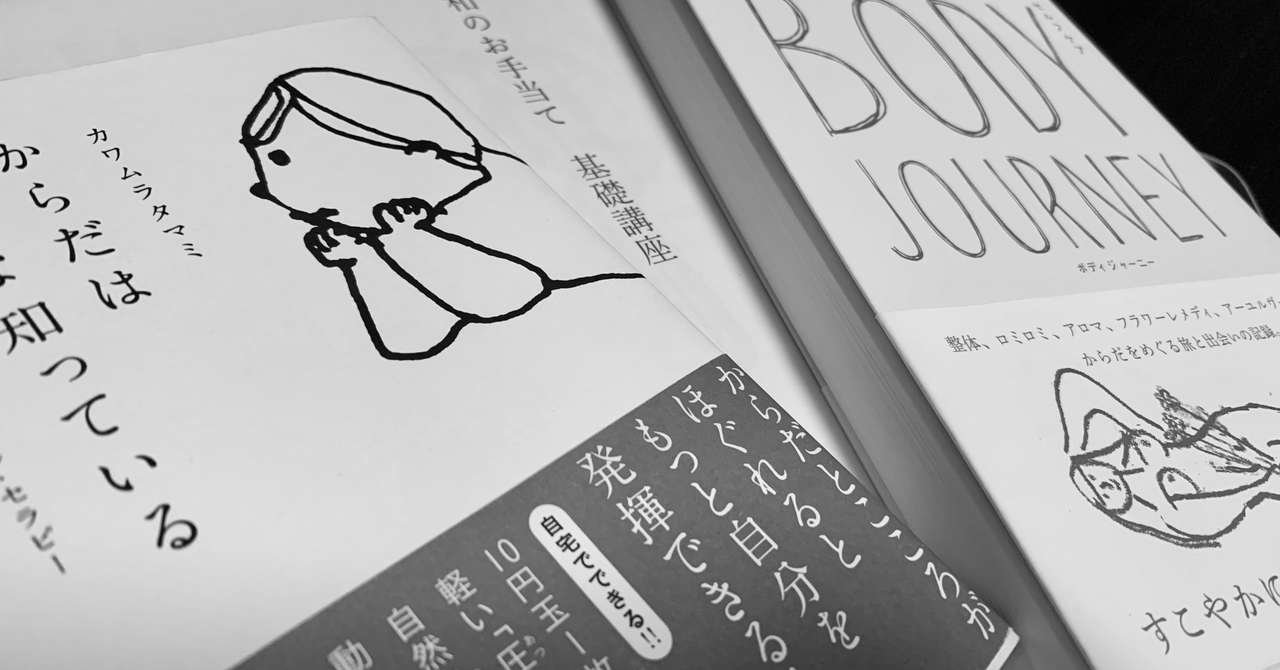 カワムラタマミ
からだは
知っている
セラピー
和のお手当て 基礎講座
からだとこころが
ほぐれると
もっと自分を
発揮できる
自宅でできる!!
10円玉一枚
軽い「圧
自然
動
BODY
JOURNEY
ボディジャーニー
整体、ロミロミ、アロマ、フラワーレメディ、アーユルヴ
からだをめぐる旅と出会いの記録
すこやかに